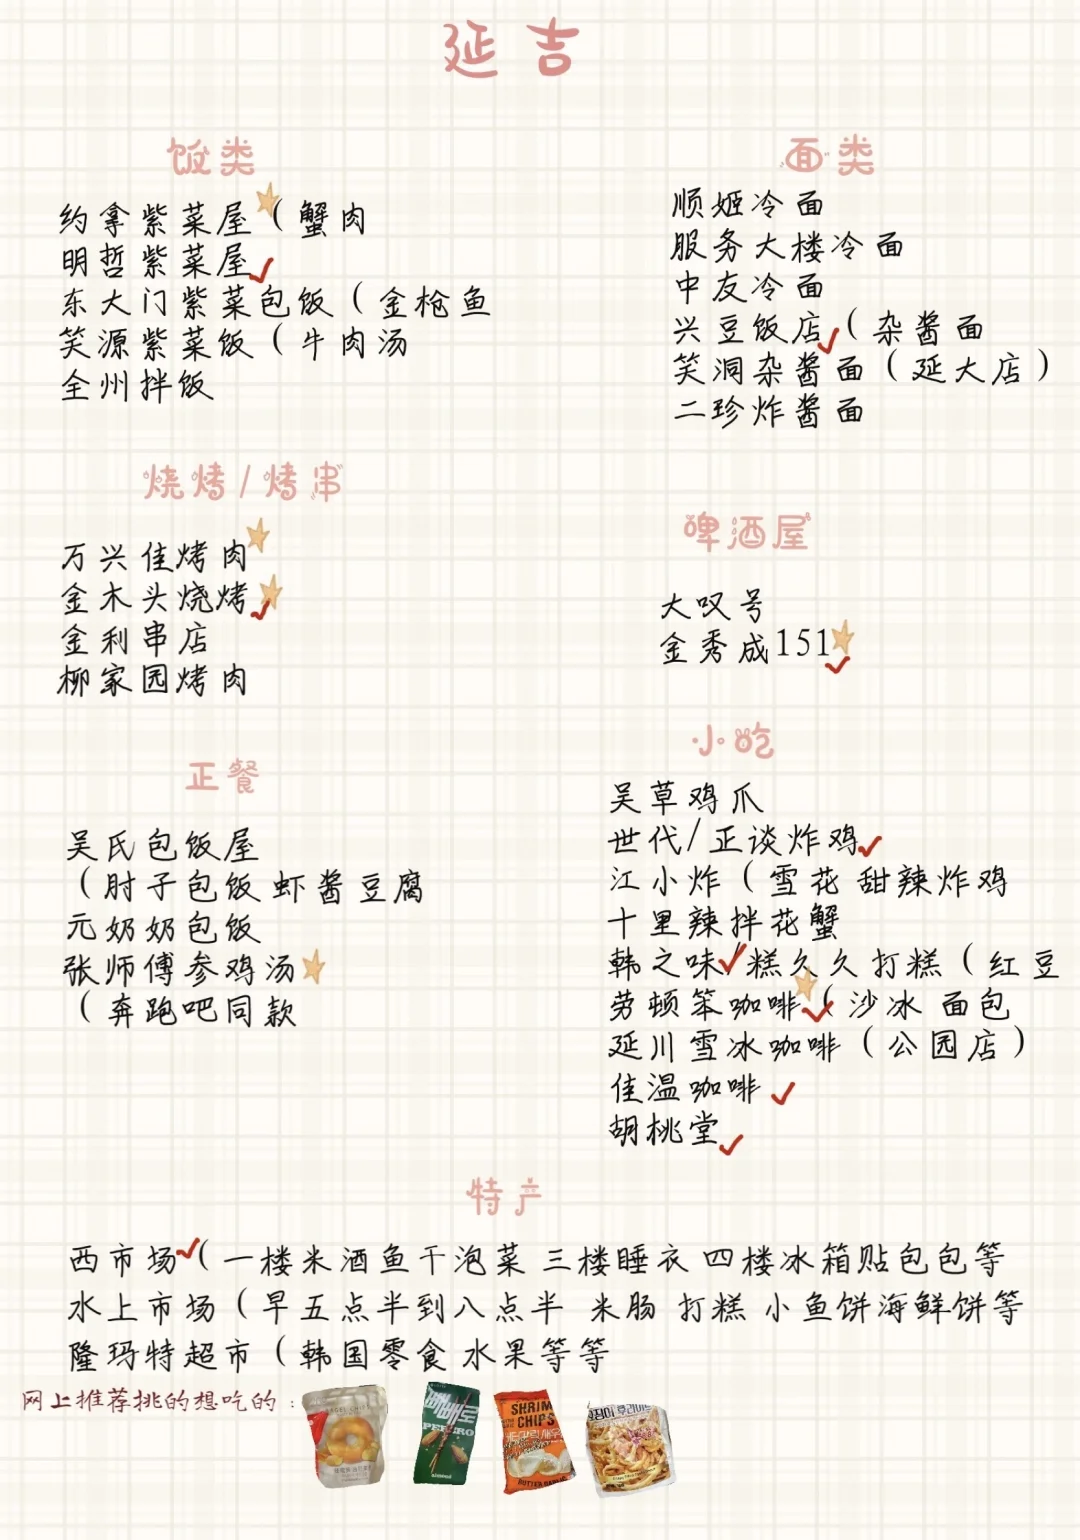 延吉
饭类
约拿紫菜屋（蟹肉
明哲紫菜屋
东大门紫菜包饭（金枪鱼
笑源紫菜饭（牛肉汤
全州拌饭
面类
顺姬冷面
服务大楼冷面
中友冷面
兴豆饭店（杂酱面
笑洞杂酱面（延大店）
二珍炸酱面
烧烤/烤串
万兴佳烤肉
金木头烧烤
金利串店
柳家园烤肉
啤酒屋
大叹号
金秀成151
正餐
吴氏包饭屋
（肘子包饭 虾酱豆腐
元奶奶包饭
张师傅参鸡汤
（奔跑吧同款
小吃
吴草鸡爪
世代/正谈炸鸡
江小炸（雪花 甜辣炸鸡
十里辣拌花蟹
韩之味/糕久久打糕（红豆
劳顿笨咖啡（沙冰 面包
延川雪冰咖啡（公园店）
佳温咖啡
胡桃堂
特产
西市场（一楼米酒鱼干泡菜 三楼睡衣 四楼冰箱贴包包等
水上市场（早五点半到八点半 米肠 打糕 小鱼饼海鲜饼等
隆玛特超市（韩国零食 水果等等
网上推荐挑的想吃的：
빼빼로
PEPERO
SHRIMP
CHIPS